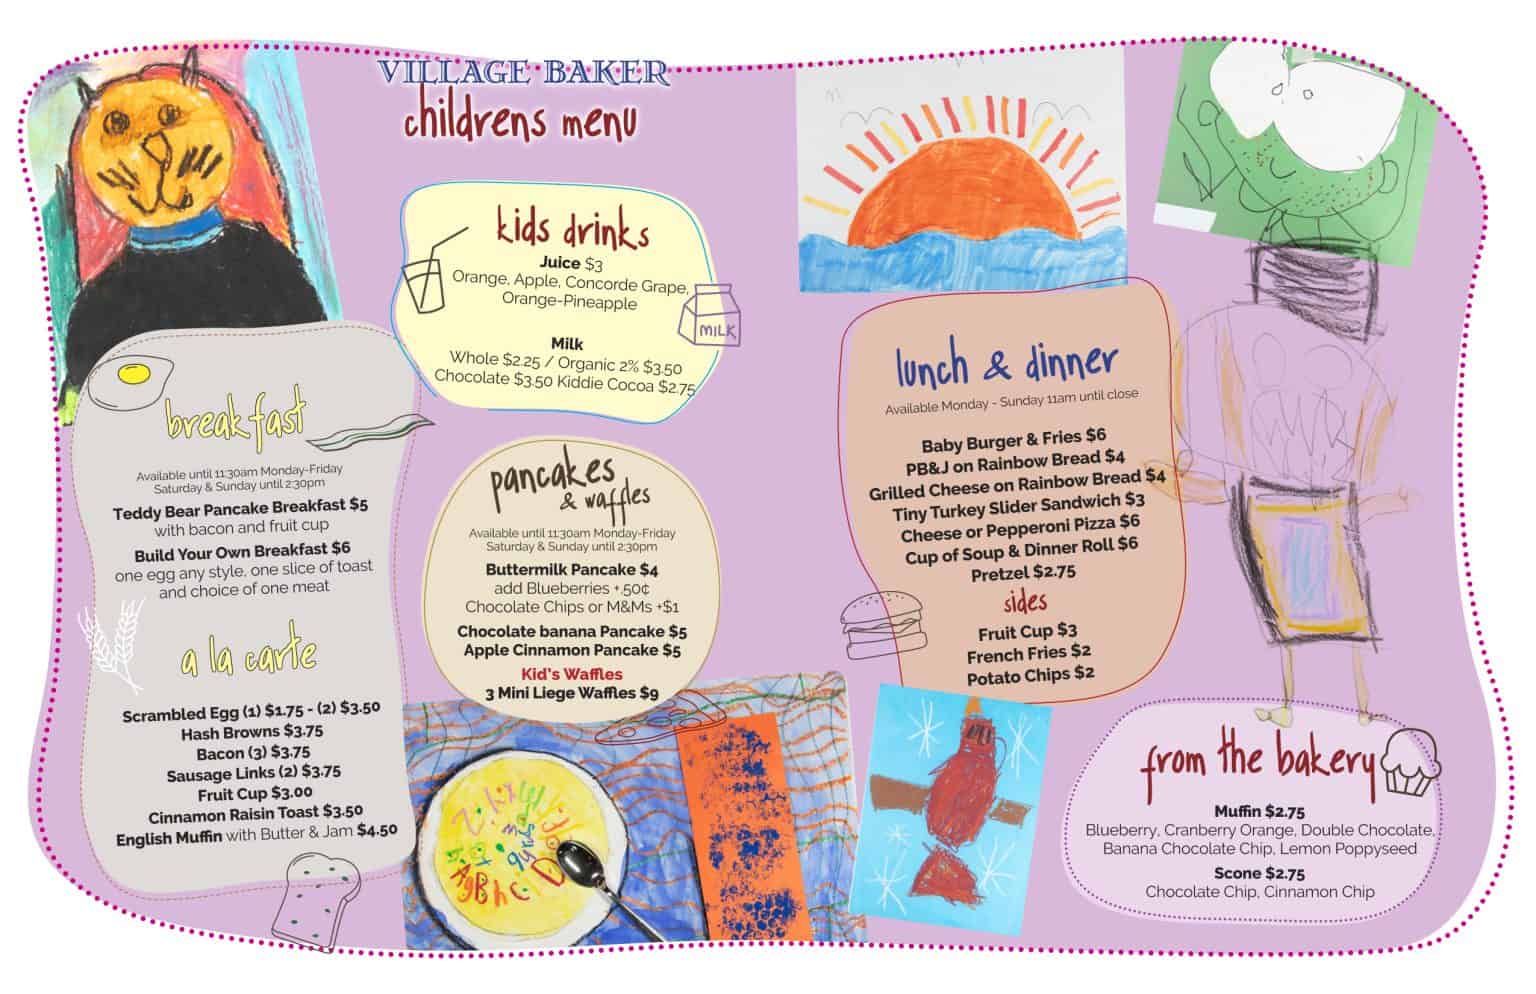 VILLAGE BAKER
childrens menu
kids drinks
Juice $3
Orange, Apple, Concorde Grape,
Orange-Pineapple
Milk
Whole $2.25 / Organic 2% $3.50
Chocolate $3.50 Kiddie Cocoa $2.75
MILK
breakfast
Available until 11:30am Monday-Friday
Saturday & Sunday until 2:30pm
Teddy Bear Pancake Breakfast $5
with bacon and fruit cup
Build Your Own Breakfast $6
one egg any style, one slice of toast
and choice of one meat
a la carte
Scrambled Egg (1) $1.75 - (2) $3.50
Hash Browns $3.75
Bacon (3) $3.75
Sausage Links (2) $3.75
Fruit Cup $3.00
Cinnamon Raisin Toast $3.50
English Muffin with Butter & Jam $4.50
pancakes
& waffles
Available until 11:30am Monday-Friday
Saturday & Sunday until 2:30pm
Buttermilk Pancake $4
add Blueberries +.50¢
Chocolate Chips or M&Ms +$1
Chocolate banana Pancake $5
Apple Cinnamon Pancake $5
Kid's Waffles
3 Mini Liege Waffles $9
lunch & dinner
Available Monday - Sunday 11am until close
Baby Burger & Fries $6
PB&J on Rainbow Bread $4
Grilled Cheese on Rainbow Bread $4
Tiny Turkey Slider Sandwich $3
Cheese or Pepperoni Pizza $6
Cup of Soup & Dinner Roll $6
Pretzel $2.75
sides
Fruit Cup $3
French Fries $2
Potato Chips $2
from the bakery
Muffin $2.75
Blueberry, Cranberry Orange, Double Chocolate,
Banana Chocolate Chip, Lemon Poppyseed
Scone $2.75
Chocolate Chip, Cinnamon Chip